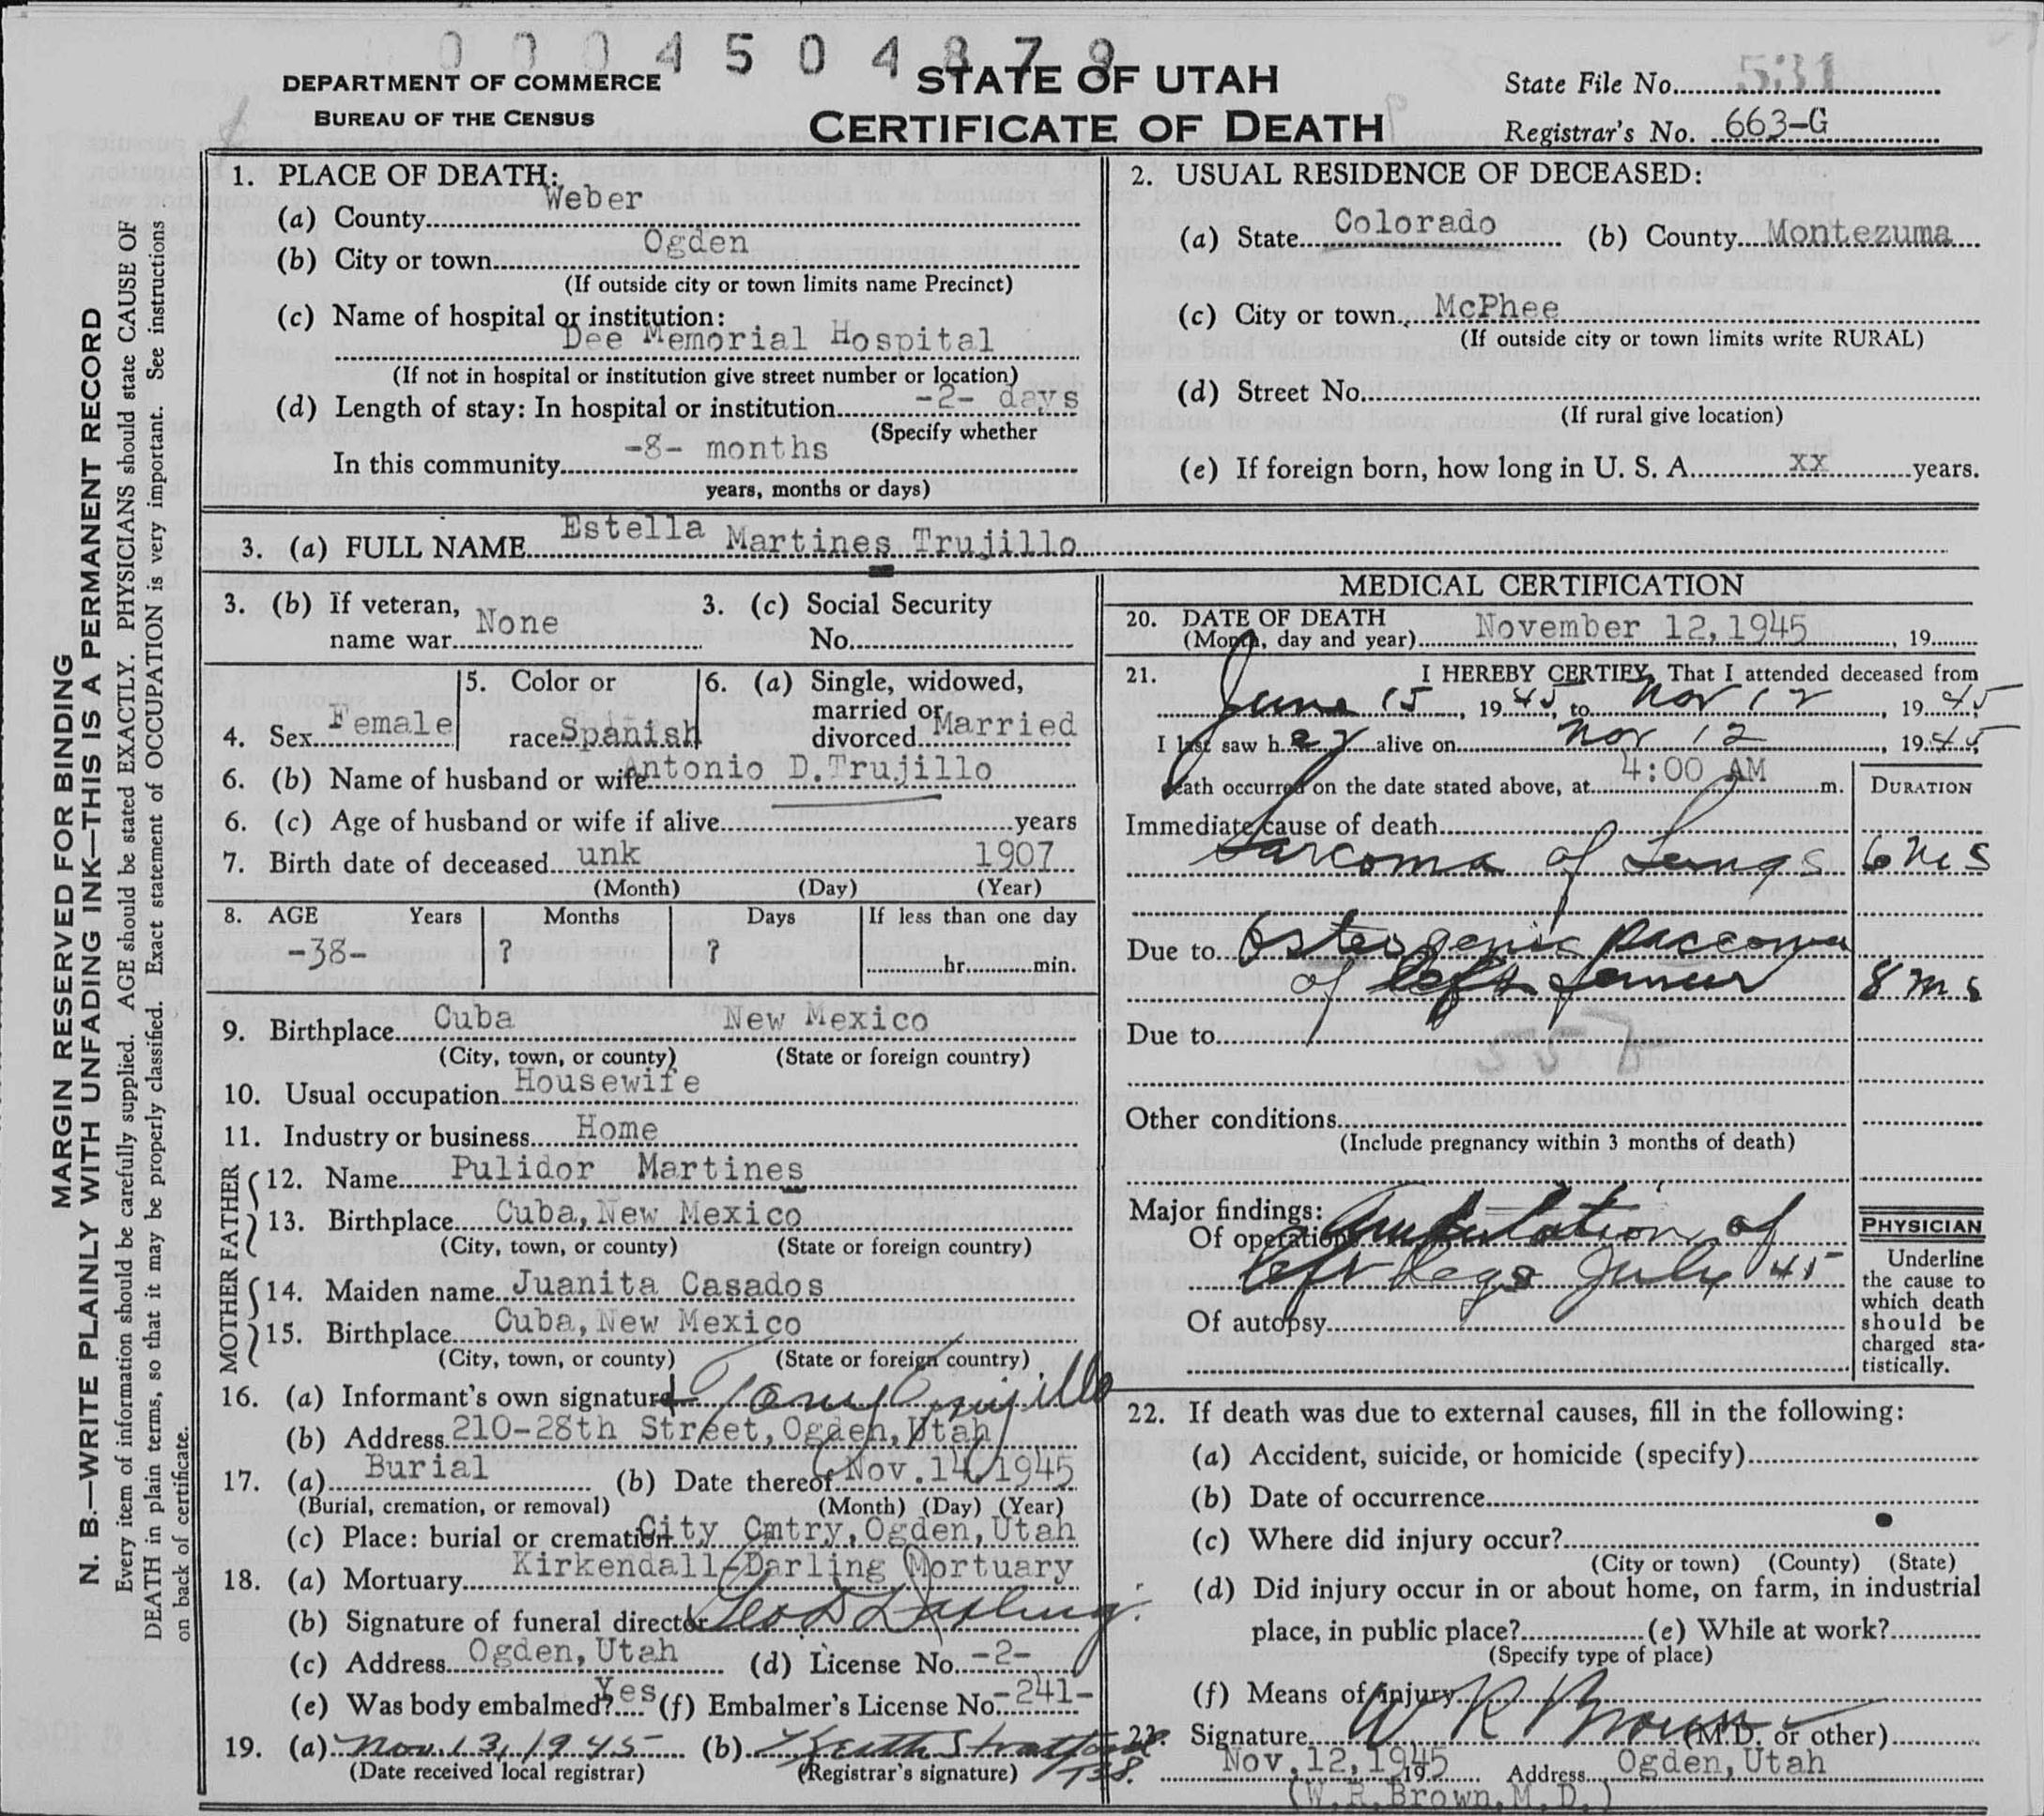 0004504879
DEPARTMENT OF COMMERCE
BUREAU OF THE CENSUS
STATE OF UTAH
CERTIFICATE OF DEATH
State File No. 531
Registrar's No. 663-G
MARGIN RESERVED FOR BINDING
N. B.—WRITE PLAINLY WITH UNFADING INK—THIS IS A PERMANENT RECORD
Every item of information should be carefully supplied. AGE should be stated EXACTLY. PHYSICIANS should state CAUSE OF
DEATH in plain terms, so that it may be properly classified. Exact statement of OCCUPATION is very important. See instructions
on back of certificate.
1. PLACE OF DEATH:
(a) County Weber
(b) City or town Ogden
(If outside city or town limits name Precinct)
(c) Name of hospital or institution:
Dee Memorial Hospital
(If not in hospital or institution give street number or location)
(d) Length of stay: In hospital or institution -2- days
(Specify whether
In this community -8- months
years, months or days)
2. USUAL RESIDENCE OF DECEASED:
(a) State Colorado (b) County Montezuma
(c) City or town McPhee
(If outside city or town limits write RURAL)
(d) Street No.
(If rural give location)
(e) If foreign born, how long in U. S. A. xx years.
3. (a) FULL NAME Estella Martines Trujillo
3. (b) If veteran, name war None
3. (c) Social Security No.
4. Sex Female
5. Color or race Spanish
6. (a) Single, widowed, married or divorced Married
6. (b) Name of husband or wife Antonio D.Trujillo
6. (c) Age of husband or wife if alive years
7. Birth date of deceased unk 1907
(Month) (Day) (Year)
8. AGE Years Months Days If less than one day
-38- ? ? hr. min.
9. Birthplace Cuba New Mexico
(City, town, or county) (State or foreign country)
10. Usual occupation Housewife
11. Industry or business Home
FATHER
12. Name Pulidor Martines
13. Birthplace Cuba, New Mexico
(City, town, or county) (State or foreign country)
MOTHER
14. Maiden name Juanita Casados
15. Birthplace Cuba, New Mexico
(City, town, or county) (State or foreign country)
16. (a) Informant's own signature Tony Trujillo
(b) Address 210-28th Street, Ogden, Utah
17. (a) Burial (b) Date thereof Nov. 14, 1945
(Burial, cremation, or removal) (Month) (Day) (Year)
(c) Place: burial or cremation City Cmtry, Ogden, Utah
18. (a) Mortuary Kirkendall-Darling Mortuary
(b) Signature of funeral director Geo D Darling
(c) Address Ogden, Utah (d) License No. -2-
(e) Was body embalmed? Yes (f) Embalmer's License No. -241-
19. (a) Nov. 13, 1945 (b) Keith Stratford
(Date received local registrar) (Registrar's signature)
MEDICAL CERTIFICATION
20. DATE OF DEATH
(Month, day and year) November 12, 1945, 19
21. I HEREBY CERTIFY, That I attended deceased from
June 15, 1945, to Nov 12, 1945
I last saw her alive on Nov 12, 1945
death occurred on the date stated above, at 4:00 AM m.
DURATION
Immediate cause of death
Sarcoma of Lungs 6 ms
Due to Osteogenic Sarcoma
of left femur 8 ms
Due to
Other conditions
(Include pregnancy within 3 months of death)
Major findings:
Of operations Amputation of
left leg July 45
Of autopsy
PHYSICIAN
Underline
the cause to
which death
should be
charged sta-
tistically.
22. If death was due to external causes, fill in the following:
(a) Accident, suicide, or homicide (specify)
(b) Date of occurrence
(c) Where did injury occur?
(City or town) (County) (State)
(d) Did injury occur in or about home, on farm, in industrial
place, in public place? (e) While at work?
(Specify type of place)
(f) Means of injury
23. Signature W R Brown (M.D. or other)
Nov. 12, 1945 19 Address Ogden, Utah
(W.R.Brown,M.D.)